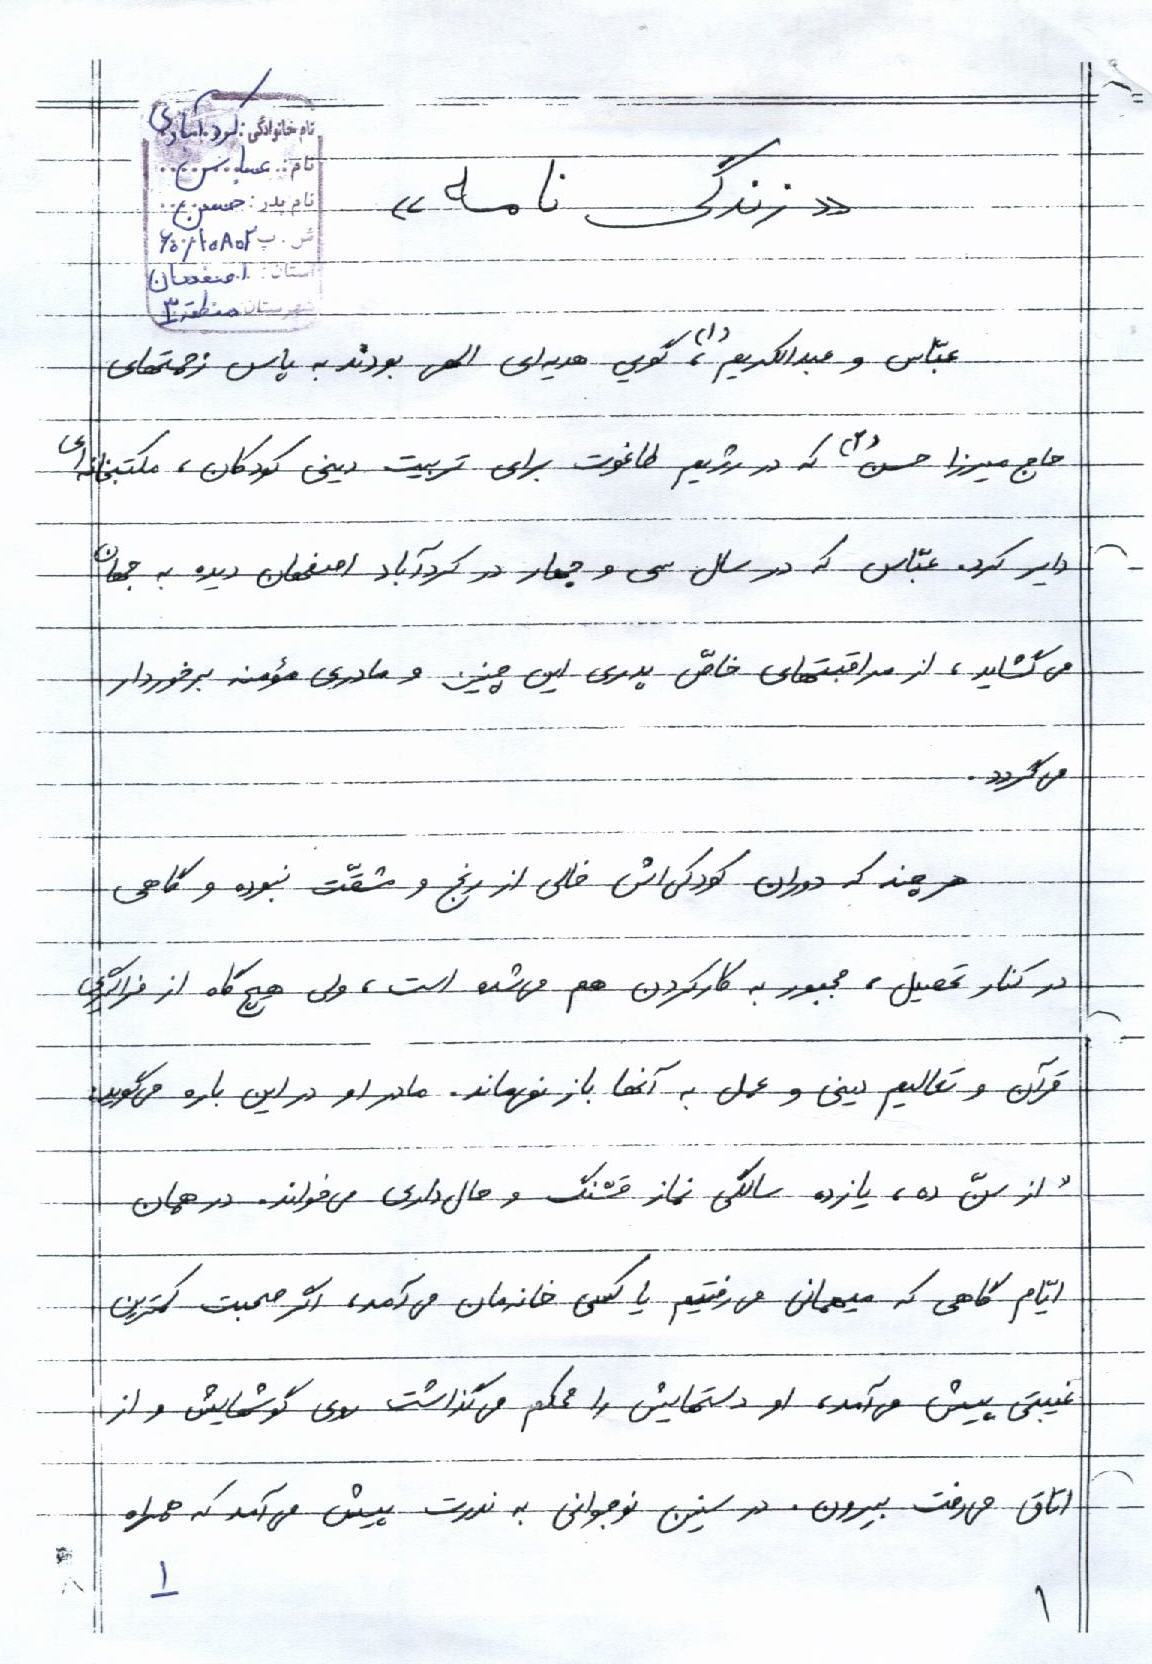 نام خانوادگی: کردآبادی
نام: عباس
نام پدر: حسن
ش. پ
استان: اصفهان
شهرستان منطقه ۳
«زندگی نامه»
عبّاس و عبدالکریم(۱)، گویی هدیه‌ای الهی بودند به پاس زحمتهای
حاج میرزا حسن(۲) که در رژیم طاغوت برای تربیت دینی کودکان، مکتبخانه‌ای
دایر کرد. عبّاس که در سال سی و چهار در کردآباد اصفهان دیده به جهان
می‌گشاید، از مراقبتهای خاصّ پدری این چنین و مادری مؤمنه برخوردار
می‌گردد.
هر چند که دوران کودکی‌اش خالی از رنج و مشقّت نبوده و گاهی
در کنار تحصیل، مجبور به کارکردن هم می‌شده است، ولی هیچ‌گاه از فراگیری
قرآن و تعالیم دینی و عمل به آنها باز نمی‌ماند. مادر او در این باره می‌گوید:
" از سنّ ده، یازده سالگی نماز قشنگ و حال‌داری می‌خواند. در همان
ایّام گاهی که میهمانی می‌رفتیم یا کسی خانه‌مان می‌آمد، اگر صحبت کمترین
غیبتی پیش می‌آمد، او دستهایش را محکم می‌گذاشت روی گوشهایش و از
اتاق می‌رفت بیرون. در سنین نوجوانی به ندرت پیش می‌آمد که همراه
۱
۱